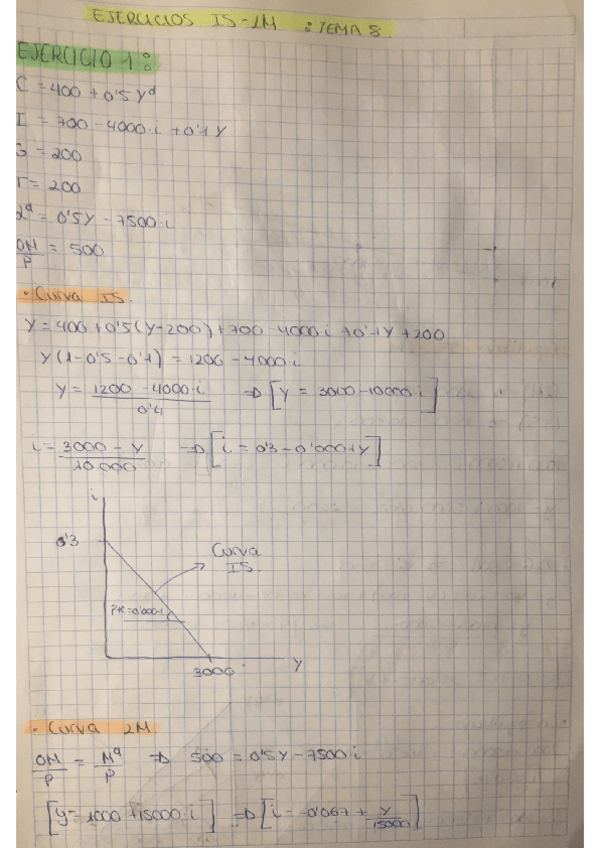 EJERCICIOS IS-LM : TEMA 8.
EJERCICIO 1:
C = 400 + 0'5 Yd
I = 700 - 4000·i + 0'1 Y
G = 200
T = 200
Ld = 0'5Y - 7500·i
OM/P = 500
· Curva IS.
Y = 400 + 0'5(Y-200) + 700 - 4000i + 0'1Y + 200
Y(1-0'5-0'1) = 1200 - 4000·i
Y = 1200 - 4000·i / 0'4 ⇒ [Y = 3000 - 10000·i]
i = 3000 - Y / 10000 ⇒ [i = 0'3 - 0'0001Y]
i
0'3
Curva
IS.
Pte=0'0001
3000
Y
· Curva LM
OM/P = Md/P ⇒ 500 = 0'5Y - 7500i
[Y = 1000 + 15000·i] ⇒ [i = -0'067 + Y/15000]